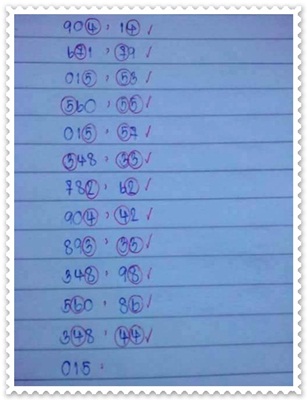 904 : 14 ✓
671 : 79 ✓
015 : 53 ✓
560 : 55 ✓
015 : 57 ✓
548 : 35 ✓
782 : 62 ✓
904 : 42 ✓
895 : 35 ✓
348 : 98 ✓
560 : 86 ✓
348 : 44 ✓
015 :